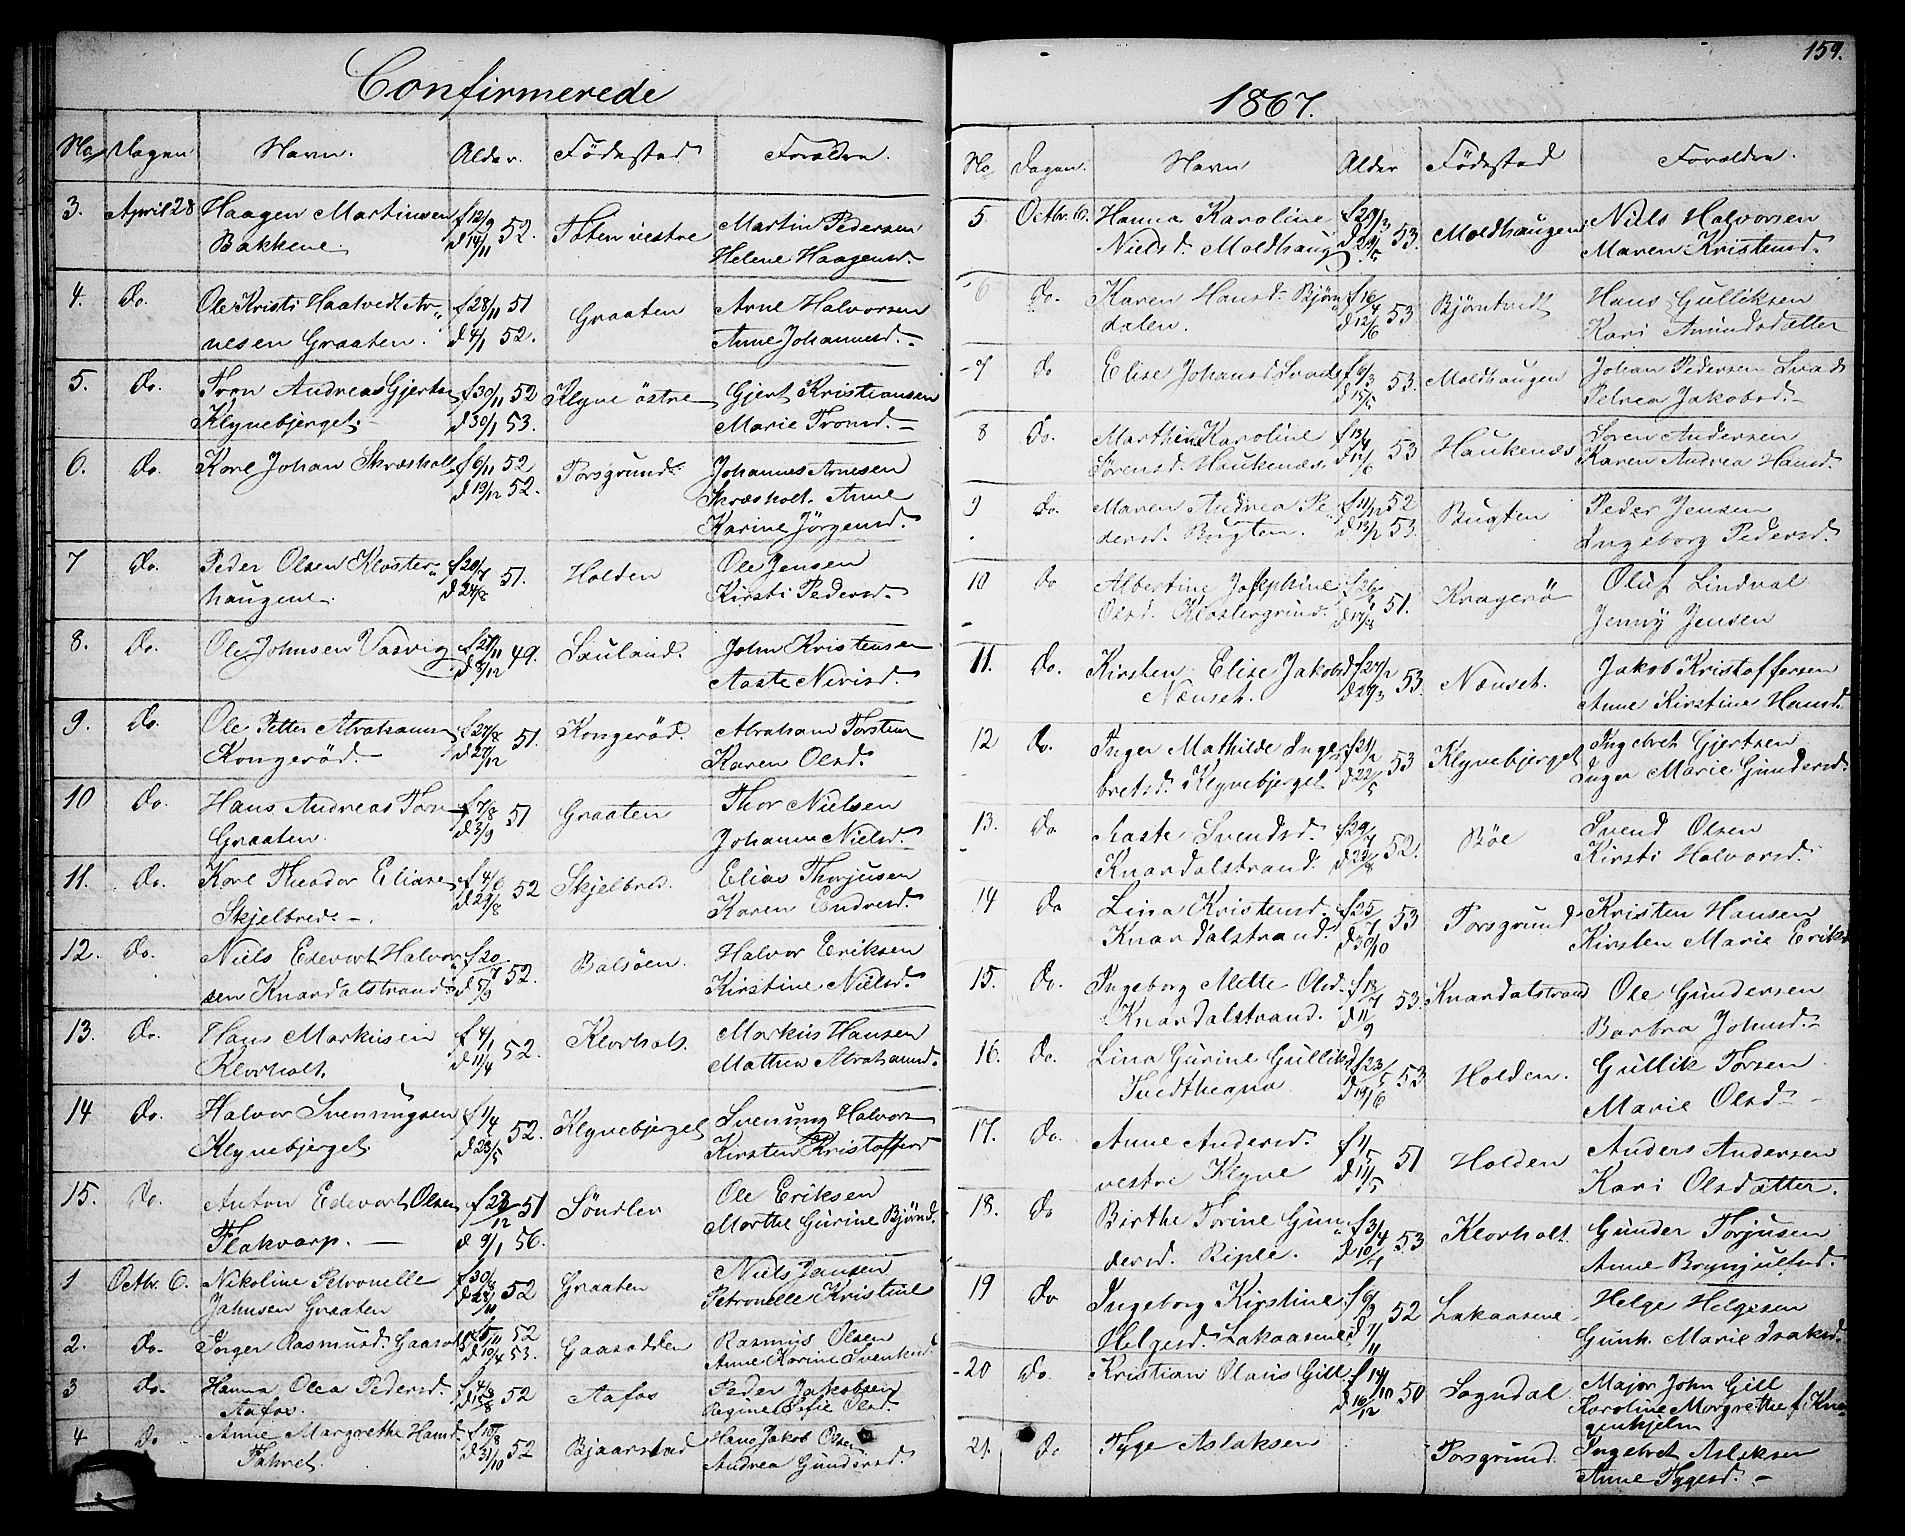 Confirmerede
No Dagen Navn. Alder. Födested Forældre.
3. April 28 Haagen Martinsen f 12/9 52. Toten vestre Martin Pedersen
Bakkene. d 14/11 Helene Haagensd.
4. Do. Ole Kristi Haatvedt Ar- f 28/11 51 Graaten Arne Halvorsen
nesen Graaten. d 4/1 52. Anne Johannesd.
5. Do. Tron Andreas Gjerts. f 30/11 52 Klyve östre Gjert Kristiansen
Klyvebjerget. d 30/1 53. Marie Tronsd.
6. Do. Karl Johan Skræsholt f 6/11 52 Porsgrund. Johannes Arnesen
d 19/12 52. Skræsholt. Anne
Karine Jörgensd.
7 Do. Peder Olsen Kloster- f 20/7 51. Holden Ole Jensen
haugene. d 24/8 Kirsti Pedersd.
8. Do. Ole Johnsen Vasvig f 27/11 49. Sauland. John Kristensen
d 3/12 Aaste Nirisd.
9. Do. Ole Petter Abrahams. f 27/8 51. Kongeröd. Abraham Torsten
Kongeröd. d 27/12 Karen Olsd.
10 Do. Hans Andreas Tors. f 7/8 51 Graaten Thor Nielsen
Graaten. d 3/9 Johanne Nielsd.
11. Do. Karl Theodor Eliase. f 4/6 52 Skjelbred. Elias Thorjusen
Skjelbred. d 29/8 Karen Endresd.
12. Do. Niels Edevort Halvor f 20/7 52. Balsöen. Halvor Eriksen
sen Knardalstrand d 5/9 Kirstine Nielsd.
13. Do. Hans Markusein f 4/1 52. Klovholt. Markus Hansen
Klovholt. d 11/4 Mathea Abrahamsd.
14 Do. Halvor Svenningsen f 1/4 52. Klyvebjerget Svenning Halvors
Klyvebjerget. d 23/5 Kirsten Kristoffersd
15. Do. Anton Edevort Olsen f 23/12 51 Söndlev Ole Eriksen
Flakvarp. d 9/1 56. Marthe Gurine Björnd.
1 Octbr. 6. Nikoline Petronelle f 30/8 52 Graaten Niels Jansen
Jahnsen Graaten d 28/11 Petronelle Kristine
2. Do. Inger Rasmusd. Gaasodd. 52 Gaasodden Rasmus Olsen
d 10/4 53. Anne Karine Svenkesd
3 Do. Hanna Olea Pedersd. f 4/8 52 Aafos Peder Jakobsen
Aafos. d 15/8 Regine Sofie Olsd.
4 Do Anne Margrethe Hansd. f 10/8 52 Bjaarstad Hans Jakob Olsen
Fahret. d 31/10 Andrea Gundersd.
159.
1867.
No. Dagen. Navn Alder Födested Forældre.
5 Octbr. 6. Hanna Karoline f 29/3 53. Moldhaugen Niels Halvorsen
Nielsd. Moldhaug d 29/5 Maren Kristensd.
6 Do. Karen Hansd. Björn f 16/4 53 Björntvedt Hans Gulliksen
dalen. d 12/6 Kari Amundsdatter
7 do Elise Johansd. Svads f 6/3 53. Moldhaugen Johan Pedersen Svads
d 15/5 Petrea Jakobsd.
8 Do. Marthine Karoline f 13/4 53 Haukenæs Sören Andersen
Sörensd. Haukenæs. d 12/6 Karen Andrea Hansd.
9 Do. Maren Andrea Pe- f 11/12 52 Bugten Peder Jensen
dersd. Bugten. d 13/2 53. Ingeborg Pedersd.
10 do Albertine Josephine 51. Kragerö Oluf Lindval
Olsd. Klostergrund. d 17/8 Jenny Jensen
11. Do. Kirsten Elise Jakobsd f 27/2 53. Nænset. Jakob Kristoffersen
Nænset. d 28/3 Anne Kirstine Hansd.
12 do. Inger Mathilde Inge f 21/2 53 Klyvebjerget Ingebret Gjertsen
bretsd. Klyvebjerget d 22/5 Inger Marie Gundersd.
13. do Aaste Svendsd. f 29/4 52. Böe Svend Olsen
Knardalstrand. d 22/8 Kirsti Halvorsd.
14 do Lina Kristensd. f 25/7 53 Porsgrund Kristen Hansen
Knardalstrand. d 30/10 Kirsten Marie Eriks
15. Do. Ingeborg Mette Olsd. f 18/7 53. Knardalstrand Ole Gundersen
Knardalstrand. d 11/9 Barbra Johnsd.
16. Do. Lina Gurine Gulliksd f 23/5 53. Holden. Gullik Torsen
Tvedtheana d 19/6 Marie Olsd.
17. Do. Anne Andersd. f 1/5 51 Holden Anders Andersen
vestre Klyve d 11/5 Kari Olsdatter.
18. Do Birthe Torine Gun- f 3/4 53 Klovholt Gunder Torjusen
dersd. Biple. d 10/7 Anne Brynjulfsd.
19 do Ingeborg Kirstine f 6/9 52 Lakaasene Helge Helgesen
Helgesd. Lakaasene d 1/11 Gunh. Marie Isaksd.
20 do. Kristian Olaus Gill f 14/10 50 Sogndal Major John Gill
d 16/12 Karoline Margrethe f. Kna-
genhjelm
21. do Tyge Aslaksen Porsgrund. Ingebret Aslaksen
Anne Tygesd.